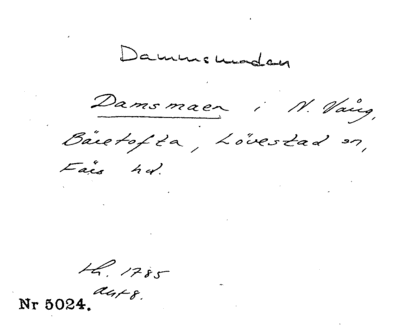 Dammsmaden
Damsmaen i N. Vång,
Bäretofta, Lövestad sn,
Färs hd.
th. 1785
akt 8.
Nr 5024.